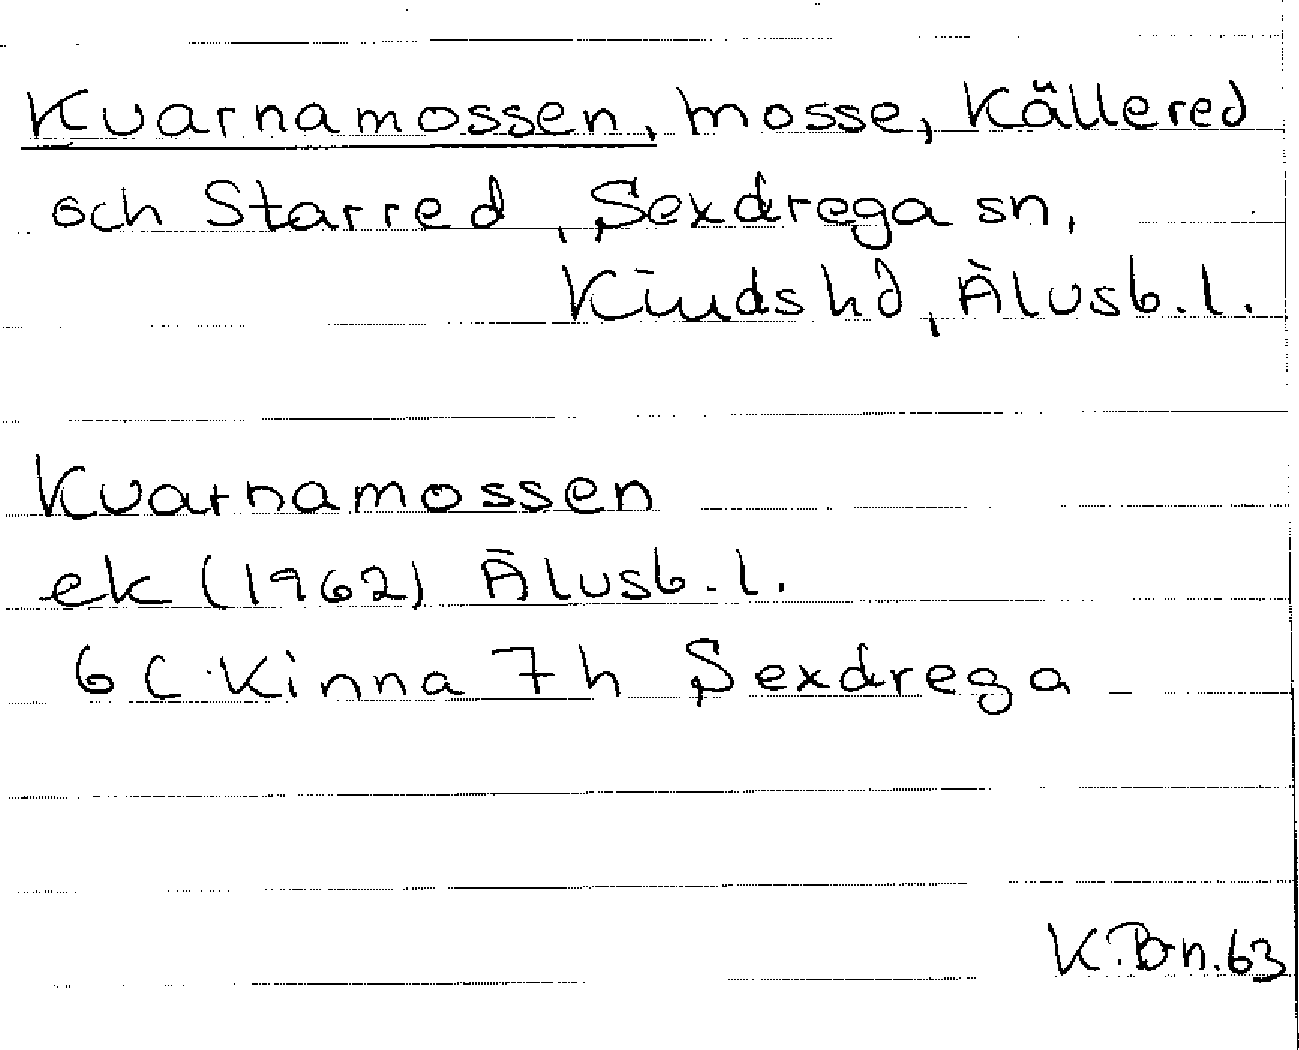 Kvarnamossen, mosse, Källered
och Starred, Sexdrega sn,
Kinds hd, Älvsb. l.
Kvarnamossen
ek (1962) Älvsb. l.
6 C Kinna 7 h Sexdrega
K. B-n. 63